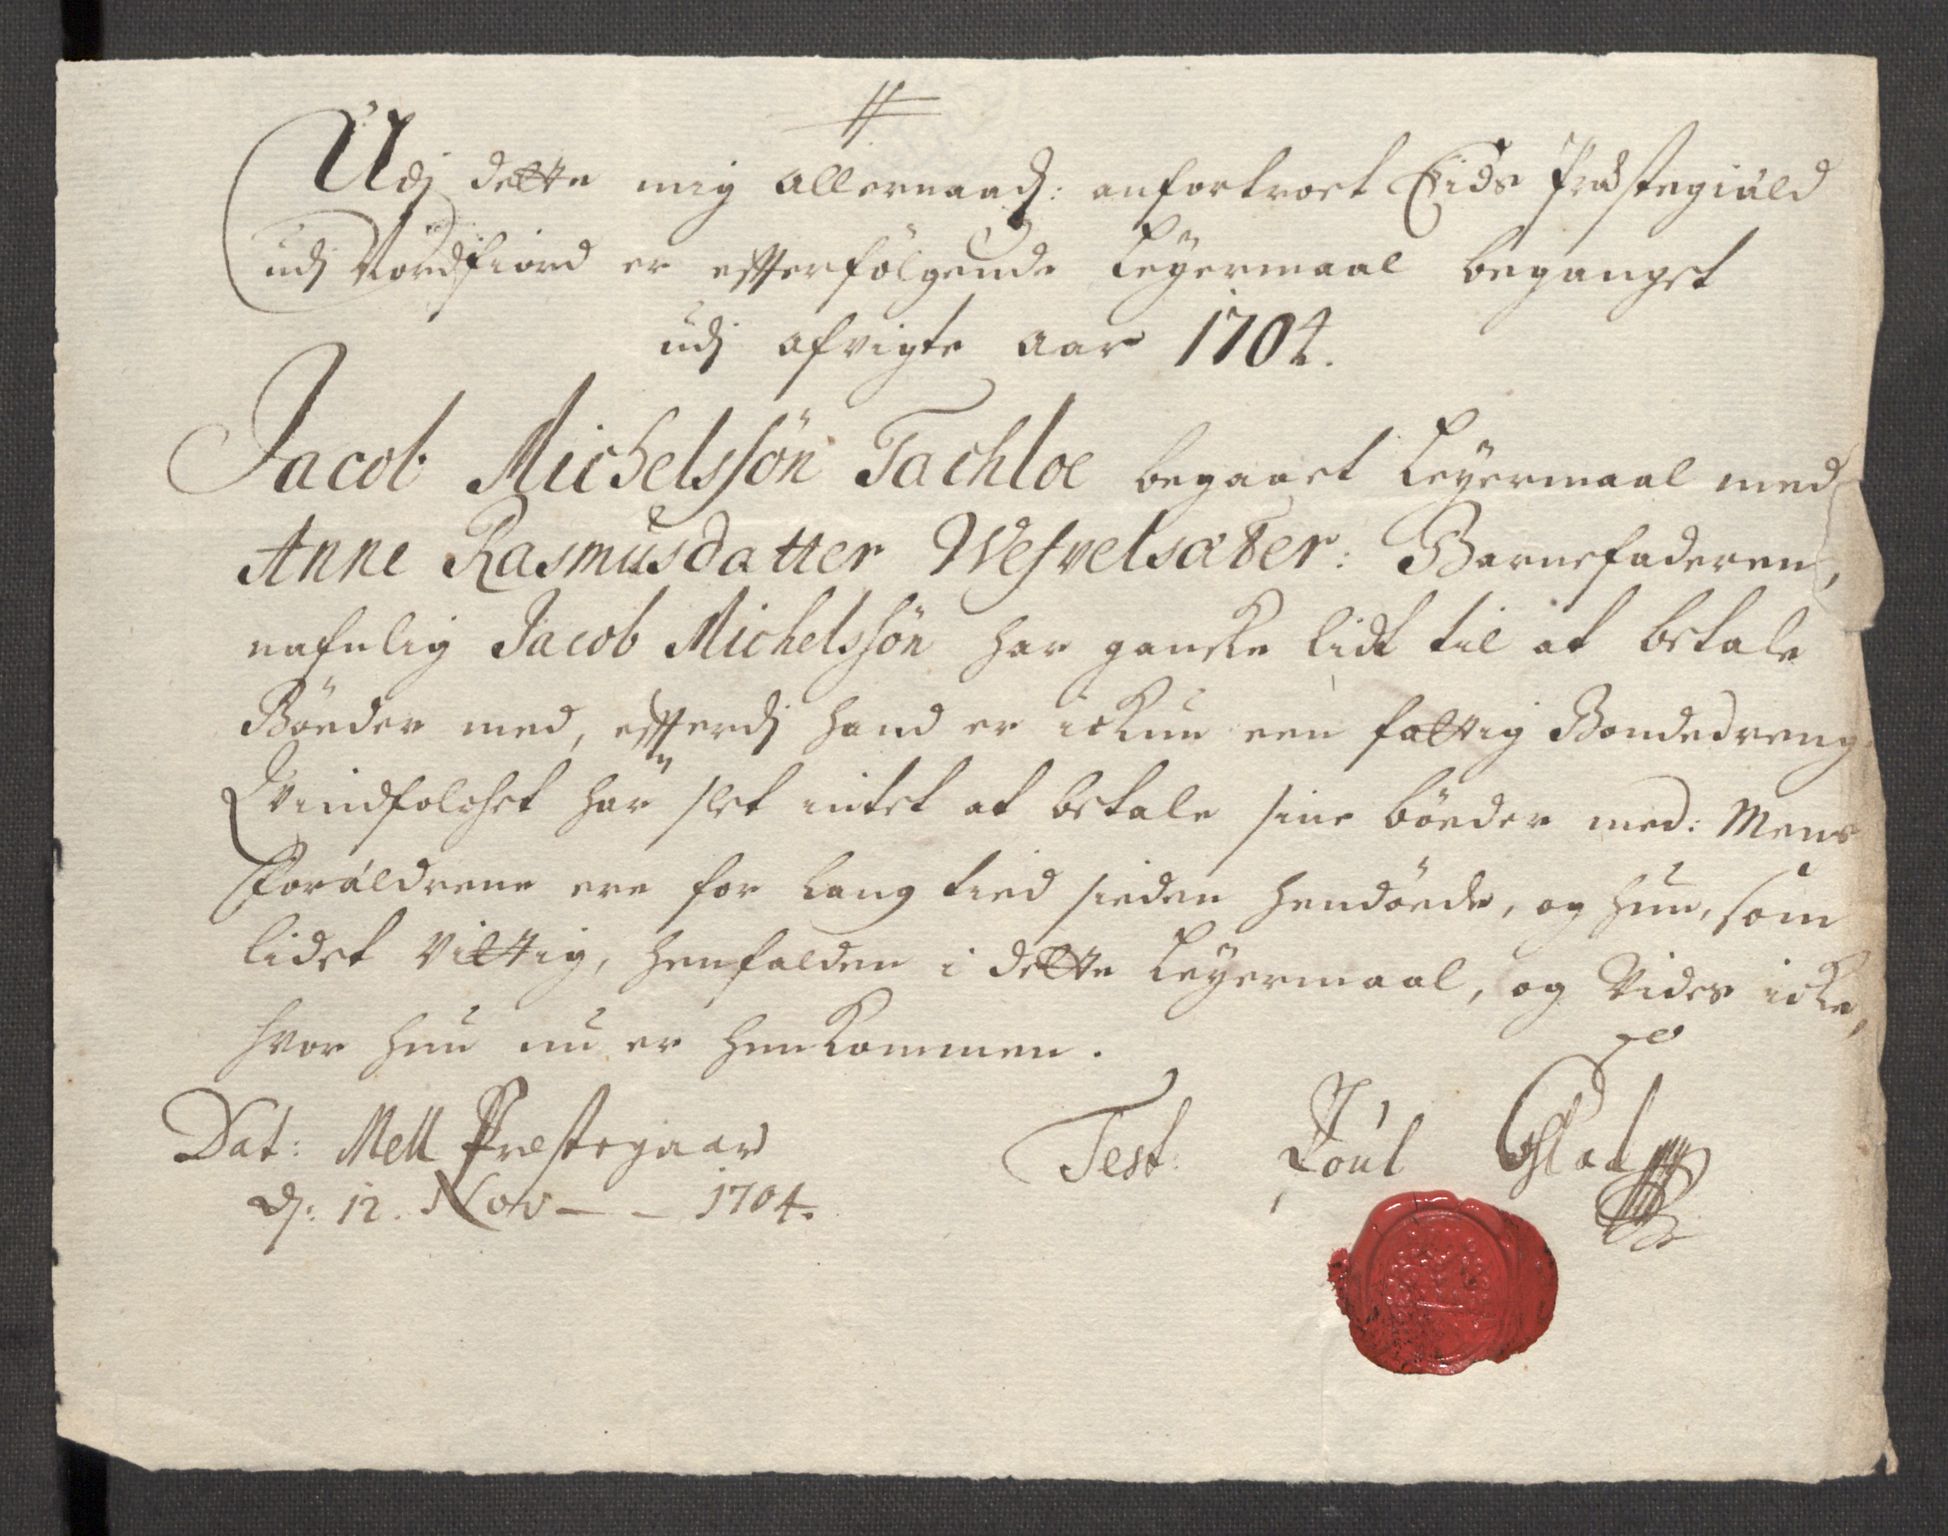 Udj dette mig allernaad: anfortroet Eids Præstegiæld
udj Nordfiord er efterfölgende Leyermaal beganget
udj afvigte aar 1704.
Jacob Michelssön Tachloe begaaet Leyermaal med
Anne Rasmusdatter Wefvelsæter: Barnefaderen,
nafnlig Jacob Michelssön har ganske lidt til at betale
Böeder med, efterdj hand er ickun een fattig Bondedreng
Qvindfolchet har slet intet at betale sine böeder med: Mens
Forældrene ere for lang tied sieden hendöede, og hun, som
lidet vittig, henfalden i dette Leyermaal, og vides icke,
hvor hun nu er henkommen.
Dat: Mell Præstegaard
d: 12. Nov – – 1704.
Test: Poul